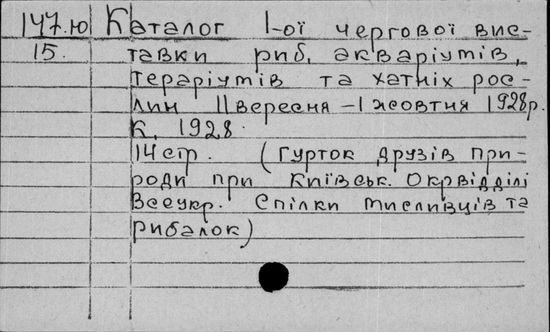 147.ю Каталог І-ої чергової вис-
15. тавки риб, акваріумів,
тераріумів та хатніх рос-
лин 11 вересня – 1 жовтня 1928р.
К. 1928.
14 стр. (Гурток друзів При-
роди при Київськ. Окрвідділі
Всеукр. Спілки мисливців та
рибалок)